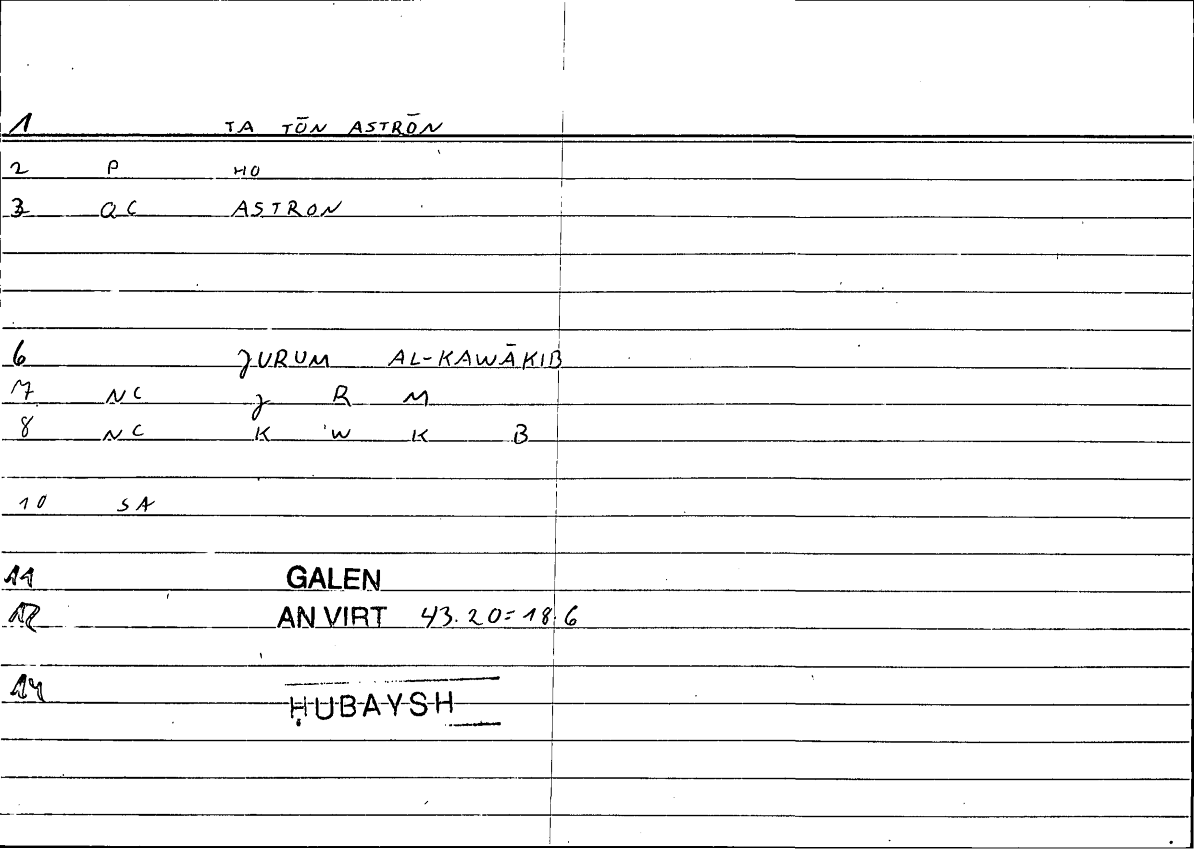 1 TA TŌN ASTRŌN
2 P HO
3 QC ASTRON
6 JURUM AL-KAWĀKIB
7 NC J R M
8 NC K W K B
10 SA
11 GALEN
12 AN VIRT 43.20=18.6
14 ḤUBAYSH